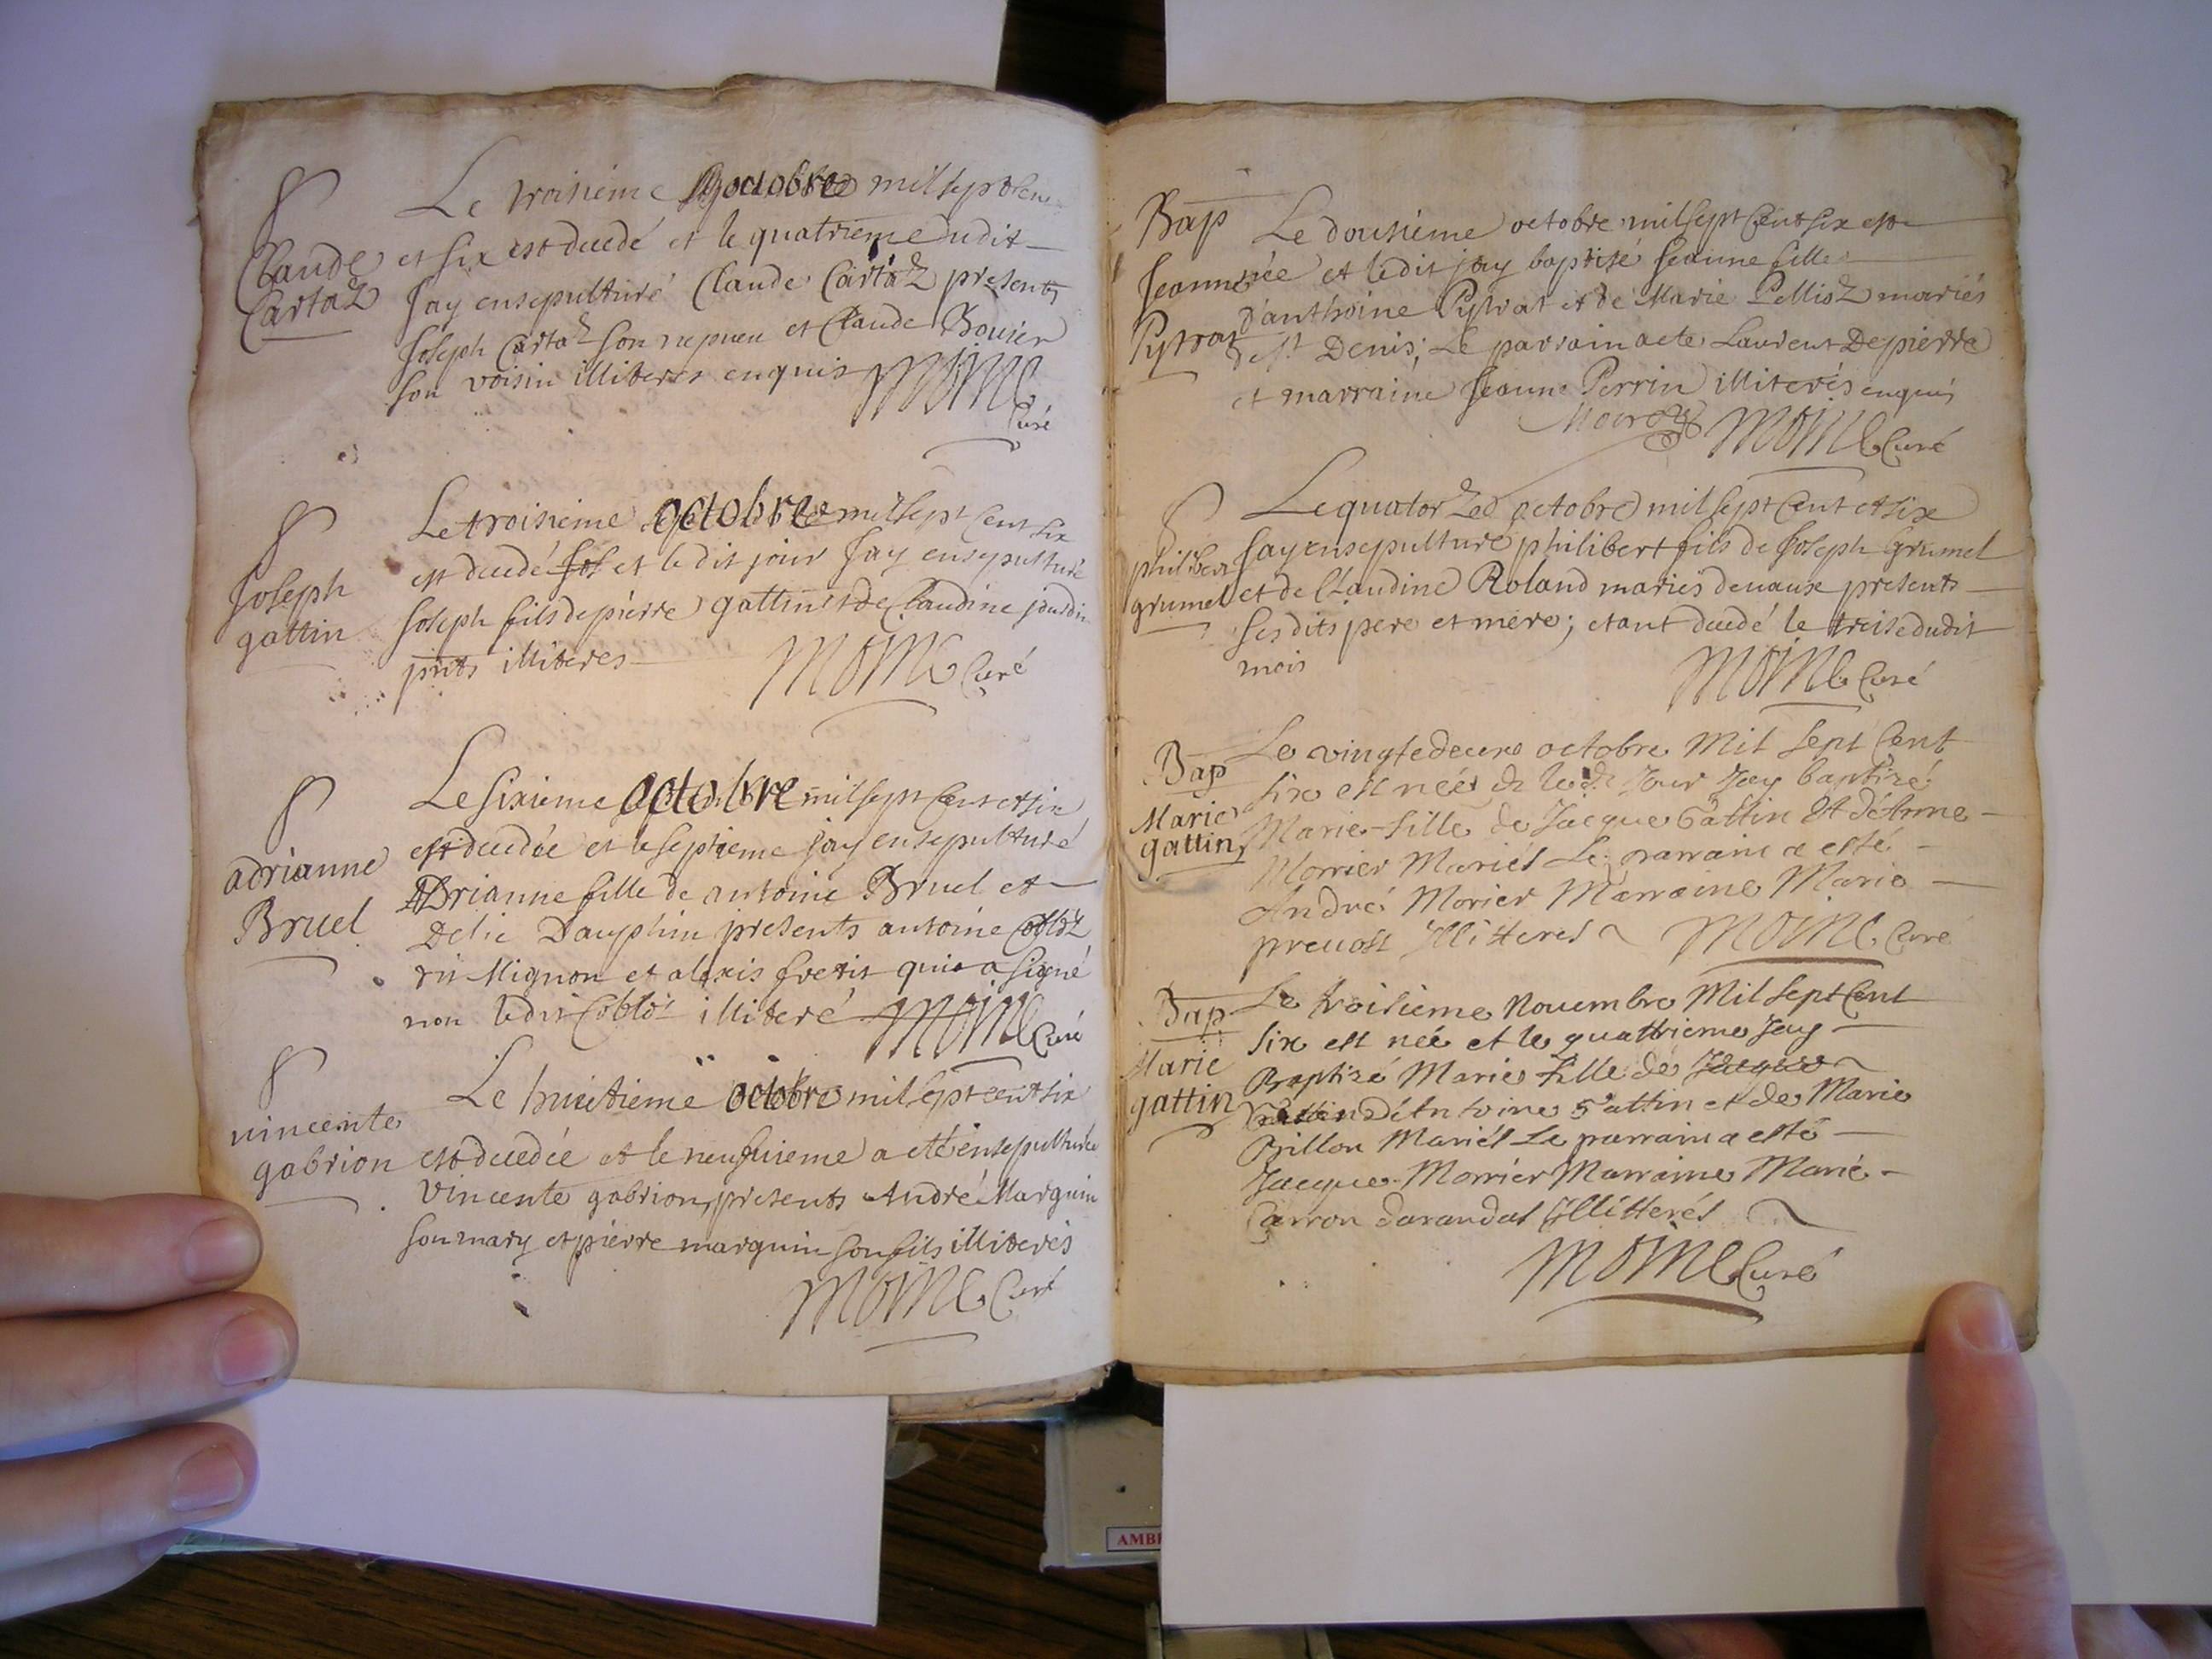 Claude
Cartaz
Le troisieme octobre mil sept cent
et six est decedé et le quatrieme dudit
Jay ensepulturé Claude Cartaz presents
Joseph Cartaz son nepueu et Claude Bouier
son voisin illiteres enquis MOINE
Curé
Joseph
gattin
Le troisieme octobre mil sept cent six
est decedé Jos et le dit jour Jay ensepulturé
Joseph fils de pierre gattin et de Claudine jourdin
pnts illiteres MOINE Curé
adrianne
Bruel
Le sixieme octobre mil sept cent et six
est decedée et le septieme jay ensepulturé
ADrianne fille de antoine Bruel et
Delie Dauphin presents antoine Coblôz
dit Mignon et alexis fretit qui a signé
non ledit Coblôz illiteré MOINE Curé
vincente
gabrion
Le huitieme octobre mil sept cent six
est decedée et le neufuieme a eté ensepulturée
vincente gabrion, presents André Marguin
son mary et pierre marguin son fils illiterés
MOINE Curé
Bap
Jeanne
Pytrat
Le dousieme octobre mil sept Cent six est
née et ledit jay baptisé Jeanne fille
d'anthoine Pytrat et de Marie Pellioz mariés
de st Denis; Le parrain a ete Laurent Depierre
et marraine Jeanne Perrin illiterés enquis
MOINE Curé
philibert
grumel
Le quatorze d octobre mil sept Cent et six
Jay ensepulturé philibert fils de Joseph grumel
et de Claudine Roland mariés de uaux presents
ses dits pere et mere; etant decedé le treise dudit
mois MOINE Curé
Bap
Marie
gattin
Le vingtedeuxe octobre Mil Sept Cent
Six est née & ledt Jour Jay baptizé
Marie fille de Jacque Gattin Et d'Anne
Morrier Mariés Le parrain a esté
André Morier Marraine Marie
preuost Jlliteres MOINE Curé
Bap
Marie
gattin
Le troisieme Nouembre Mil Sept Cent
Six est née et le quattrieme Jay
Baptizé Marie fille de Jacque
Gattin D'Antoine Gattin et de Marie
Brillon Mariés Le parrain a esté
Jacque Morrier Marraine Marie
Carron darandas Jllitterés
MOINE Curé
AMB